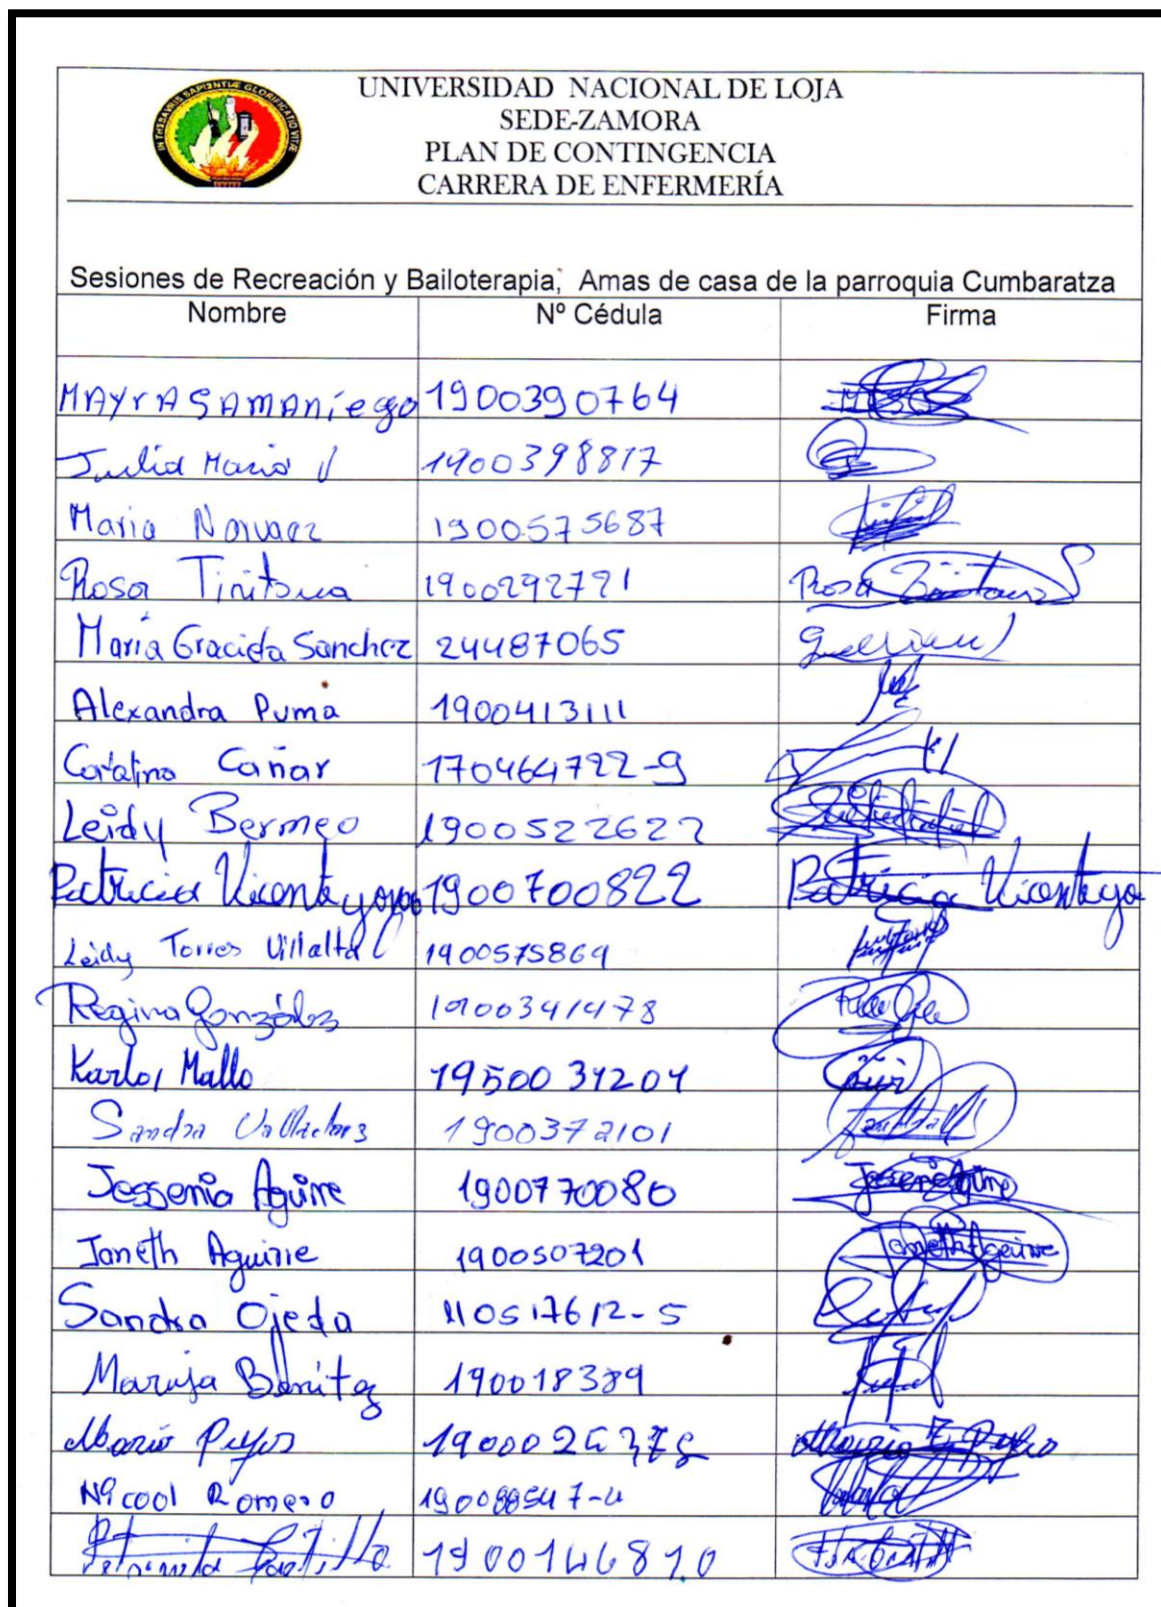 IN THESAURIS SAPIENTIAE GLORIFICATIO VITAE
UNIVERSIDAD NACIONAL DE LOJA
SEDE-ZAMORA
PLAN DE CONTINGENCIA
CARRERA DE ENFERMERÍA
Sesiones de Recreación y Bailoterapia; Amas de casa de la parroquia Cumbaratza
Nombre Nº Cédula Firma
MAYRA SAMANIEGO 1900390764
Julia Maria 1900398817
Maria Narvaez 1900575687
Rosa Tiritsua 1900292721 Rosa
Maria Gracida Sanchez 24487065
Alexandra Puma 1900413111
Catalina Cañar 170464722-9
Leidy Bermeo 1900522622
Patricia Vicente 1900700822 Patricia
Leidy Torres Villalta 1900575869
Regina González 1900341478
Karlos Mallo 1950031201
Sandra 1900372101
Jessenia Aguirre 1900770080 Jessenia Aguirre
Janeth Aguirre 1900507201 Janeth Aguirre
Sandra Ojeda 110517612-5
Maruja Benitez 190018389
Maria
Nicool Romero
Castillo